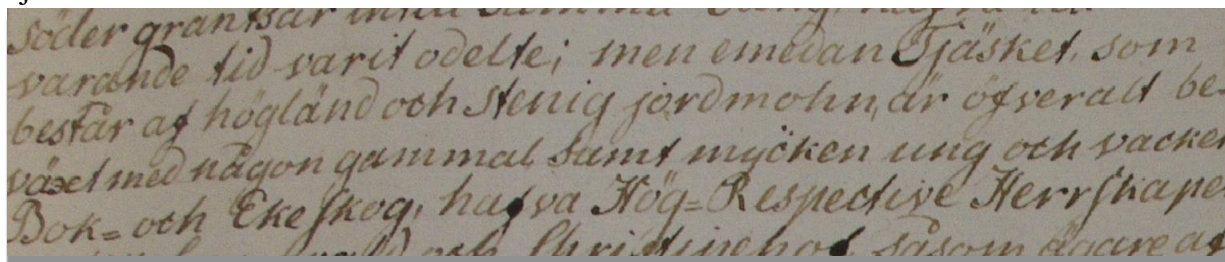 söder grantsar intill samma
varande tid varit odelte; men emedan Tjäsket, som
består af högländ och stenig jordmohn, är öfveralt be-
växt med någon gammal samt mycken ung och vacker
Bok= och Ekeskog, hafva Hög=Respective Herrskape
och Christinehof, såsom ägare af